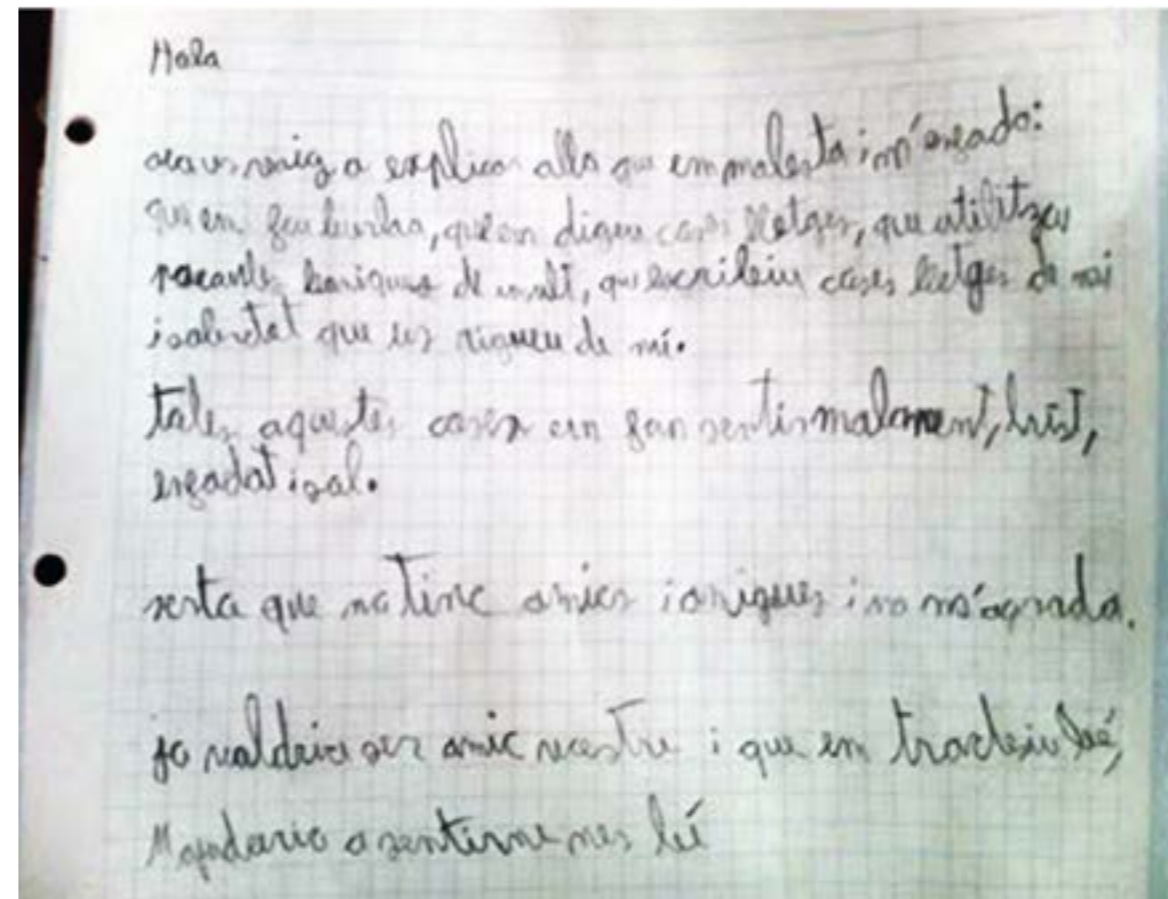 Hola
ara us vaig a explicar allo que em molesta i m'enfado:
que em feu burla, que em digeu coses lletges, que utilitzeu
paraules boniques de insult, que escribiu coses lletges de mi
i sobretot que us rigueu de mí.
totes aquestes coses em fan sentir malament, trist,
enfadat i sol.
sento que no tinc amics i amigues i no m'agrada.
jo valdria ser amic vostre i que em tracteiu bé,
M'ajudaria a sentirme mes bé